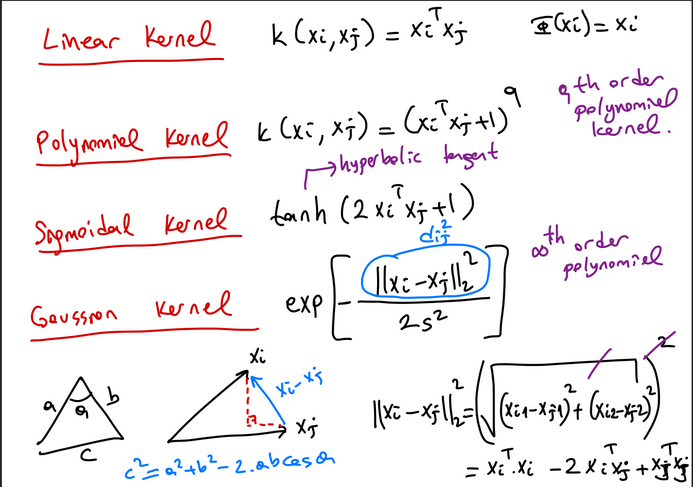 Linear Kernel k(xi,xj) = xiᵀxj Φ(xi) = xi
Polynomial Kernel k(xi,xj) = (xiᵀxj+1)^q
qth order
polynomial
kernel.
→ hyperbolic tangent
Sigmoidal Kernel tanh(2xiᵀxj+1)
dij²
∞th order
polynomial
Gaussian Kernel exp[-||xi-xj||₂²/2s²]
a θ b
c
xi
xi-xj
xj
c²=a²+b²-2.abcosθ
||xi-xj||₂²=(√(xi1-xj1)²+(xi2-xj2)²)²
= xiᵀ.xi - 2xiᵀxj + xjᵀxj